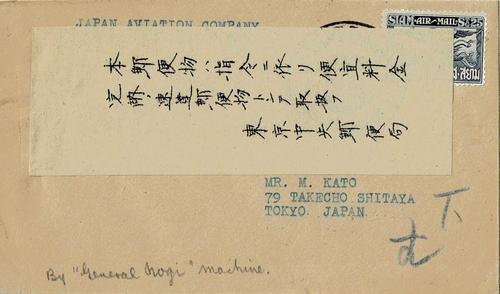 JAPAN AVIATION COMPANY
SIAM AIR MAIL S.25
本郵便物ハ指令ニ依リ便宜料金
完納、速達郵便物トシテ取扱フ
東京中央郵便局
MR. M. KATO
79 TAKECHO SHITAYA
TOKYO JAPAN
下
By "General Nogi" machine.